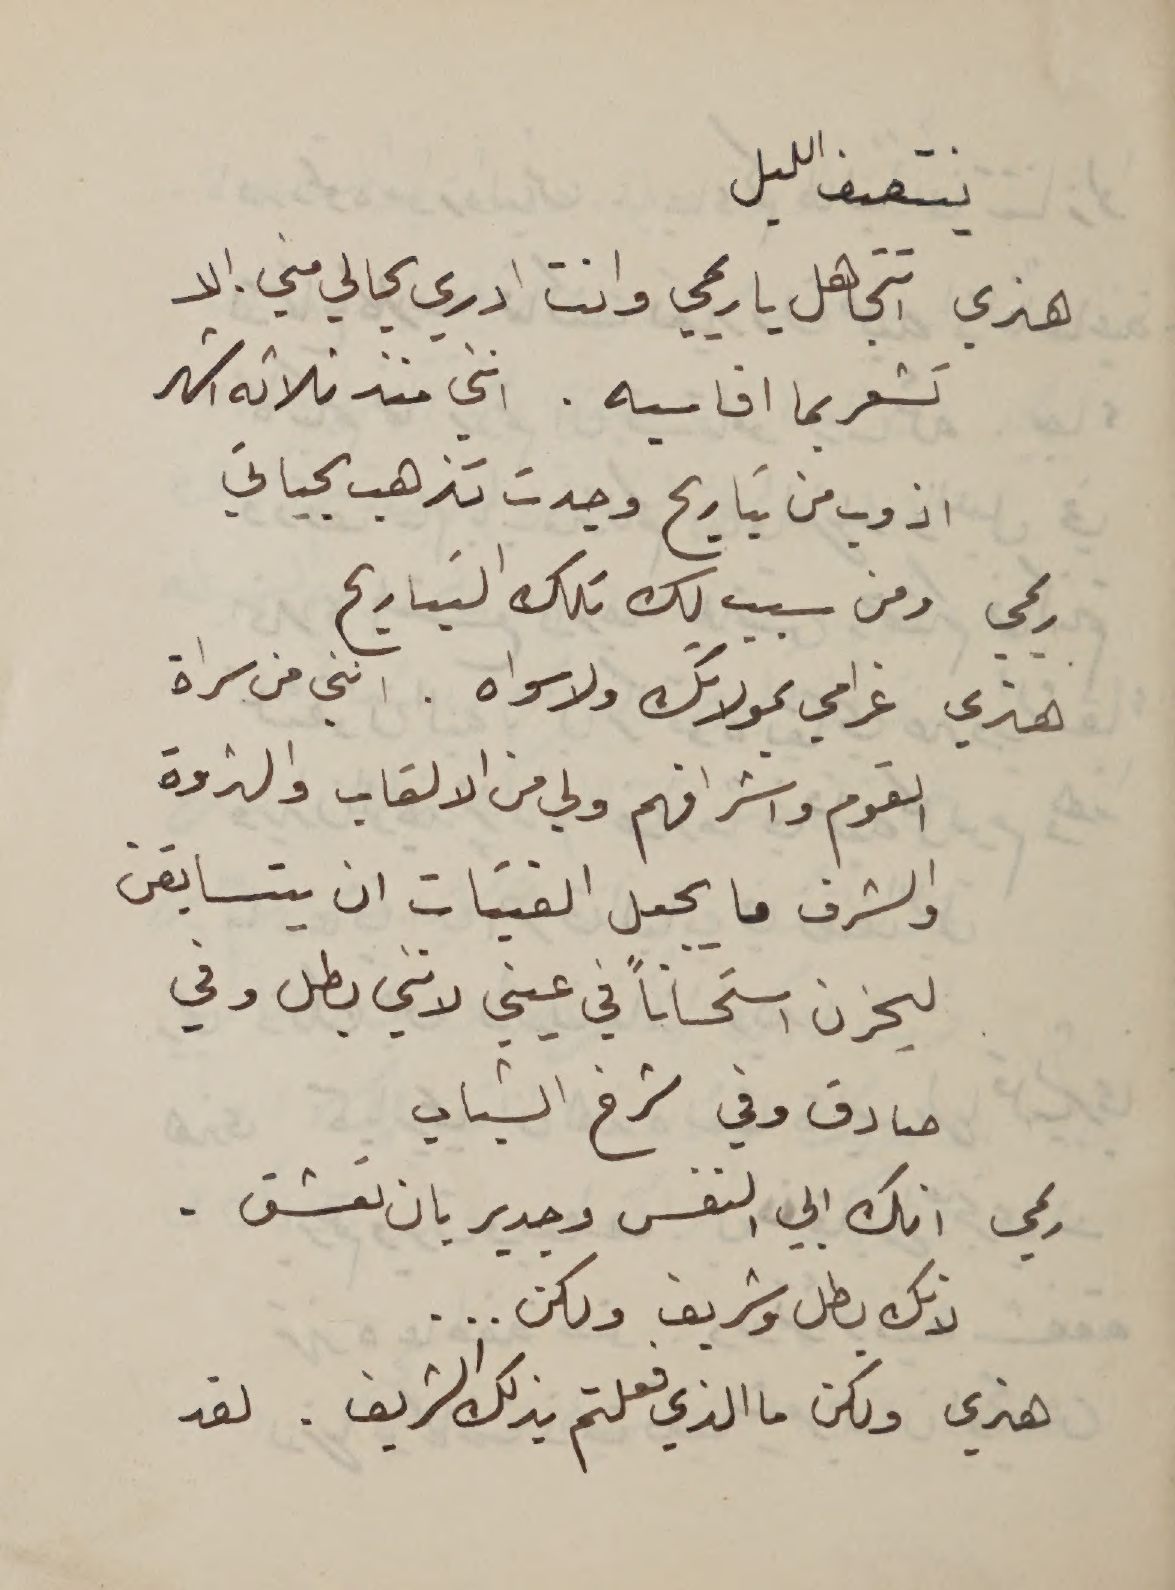 ينتصف الليل
هنري اتتجاهل يا ريمي وانت ادري بحالي مني . الا
تشعر بما اقاسيه . انني منذ ثلاثه اشهر
اذوب من تباريح وجدت تذهب بحياتي
ريمي ومن سبب لك تلك التباريح
هنري غرامي بمولاتك ولا سواه . انني من سراة
القوم واشرافهم ولي من الالقاب والثروة
والشرف ما يجعل الفتيات ان يتسابقن
ليحزن استحساناً في عيني لانني بطل وفي
صادق وفي شرخ الشباب
ريمي انك ابي النفس وجدير بان تعشق .
لانك بطل وشريف ولكن ...
هنري ولكن ما الذي فعلتم بذلك الشريف . لقد